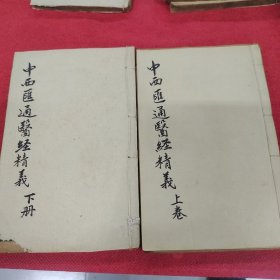 中西匯通醫經精義 上卷
中西匯通醫经精義 下册